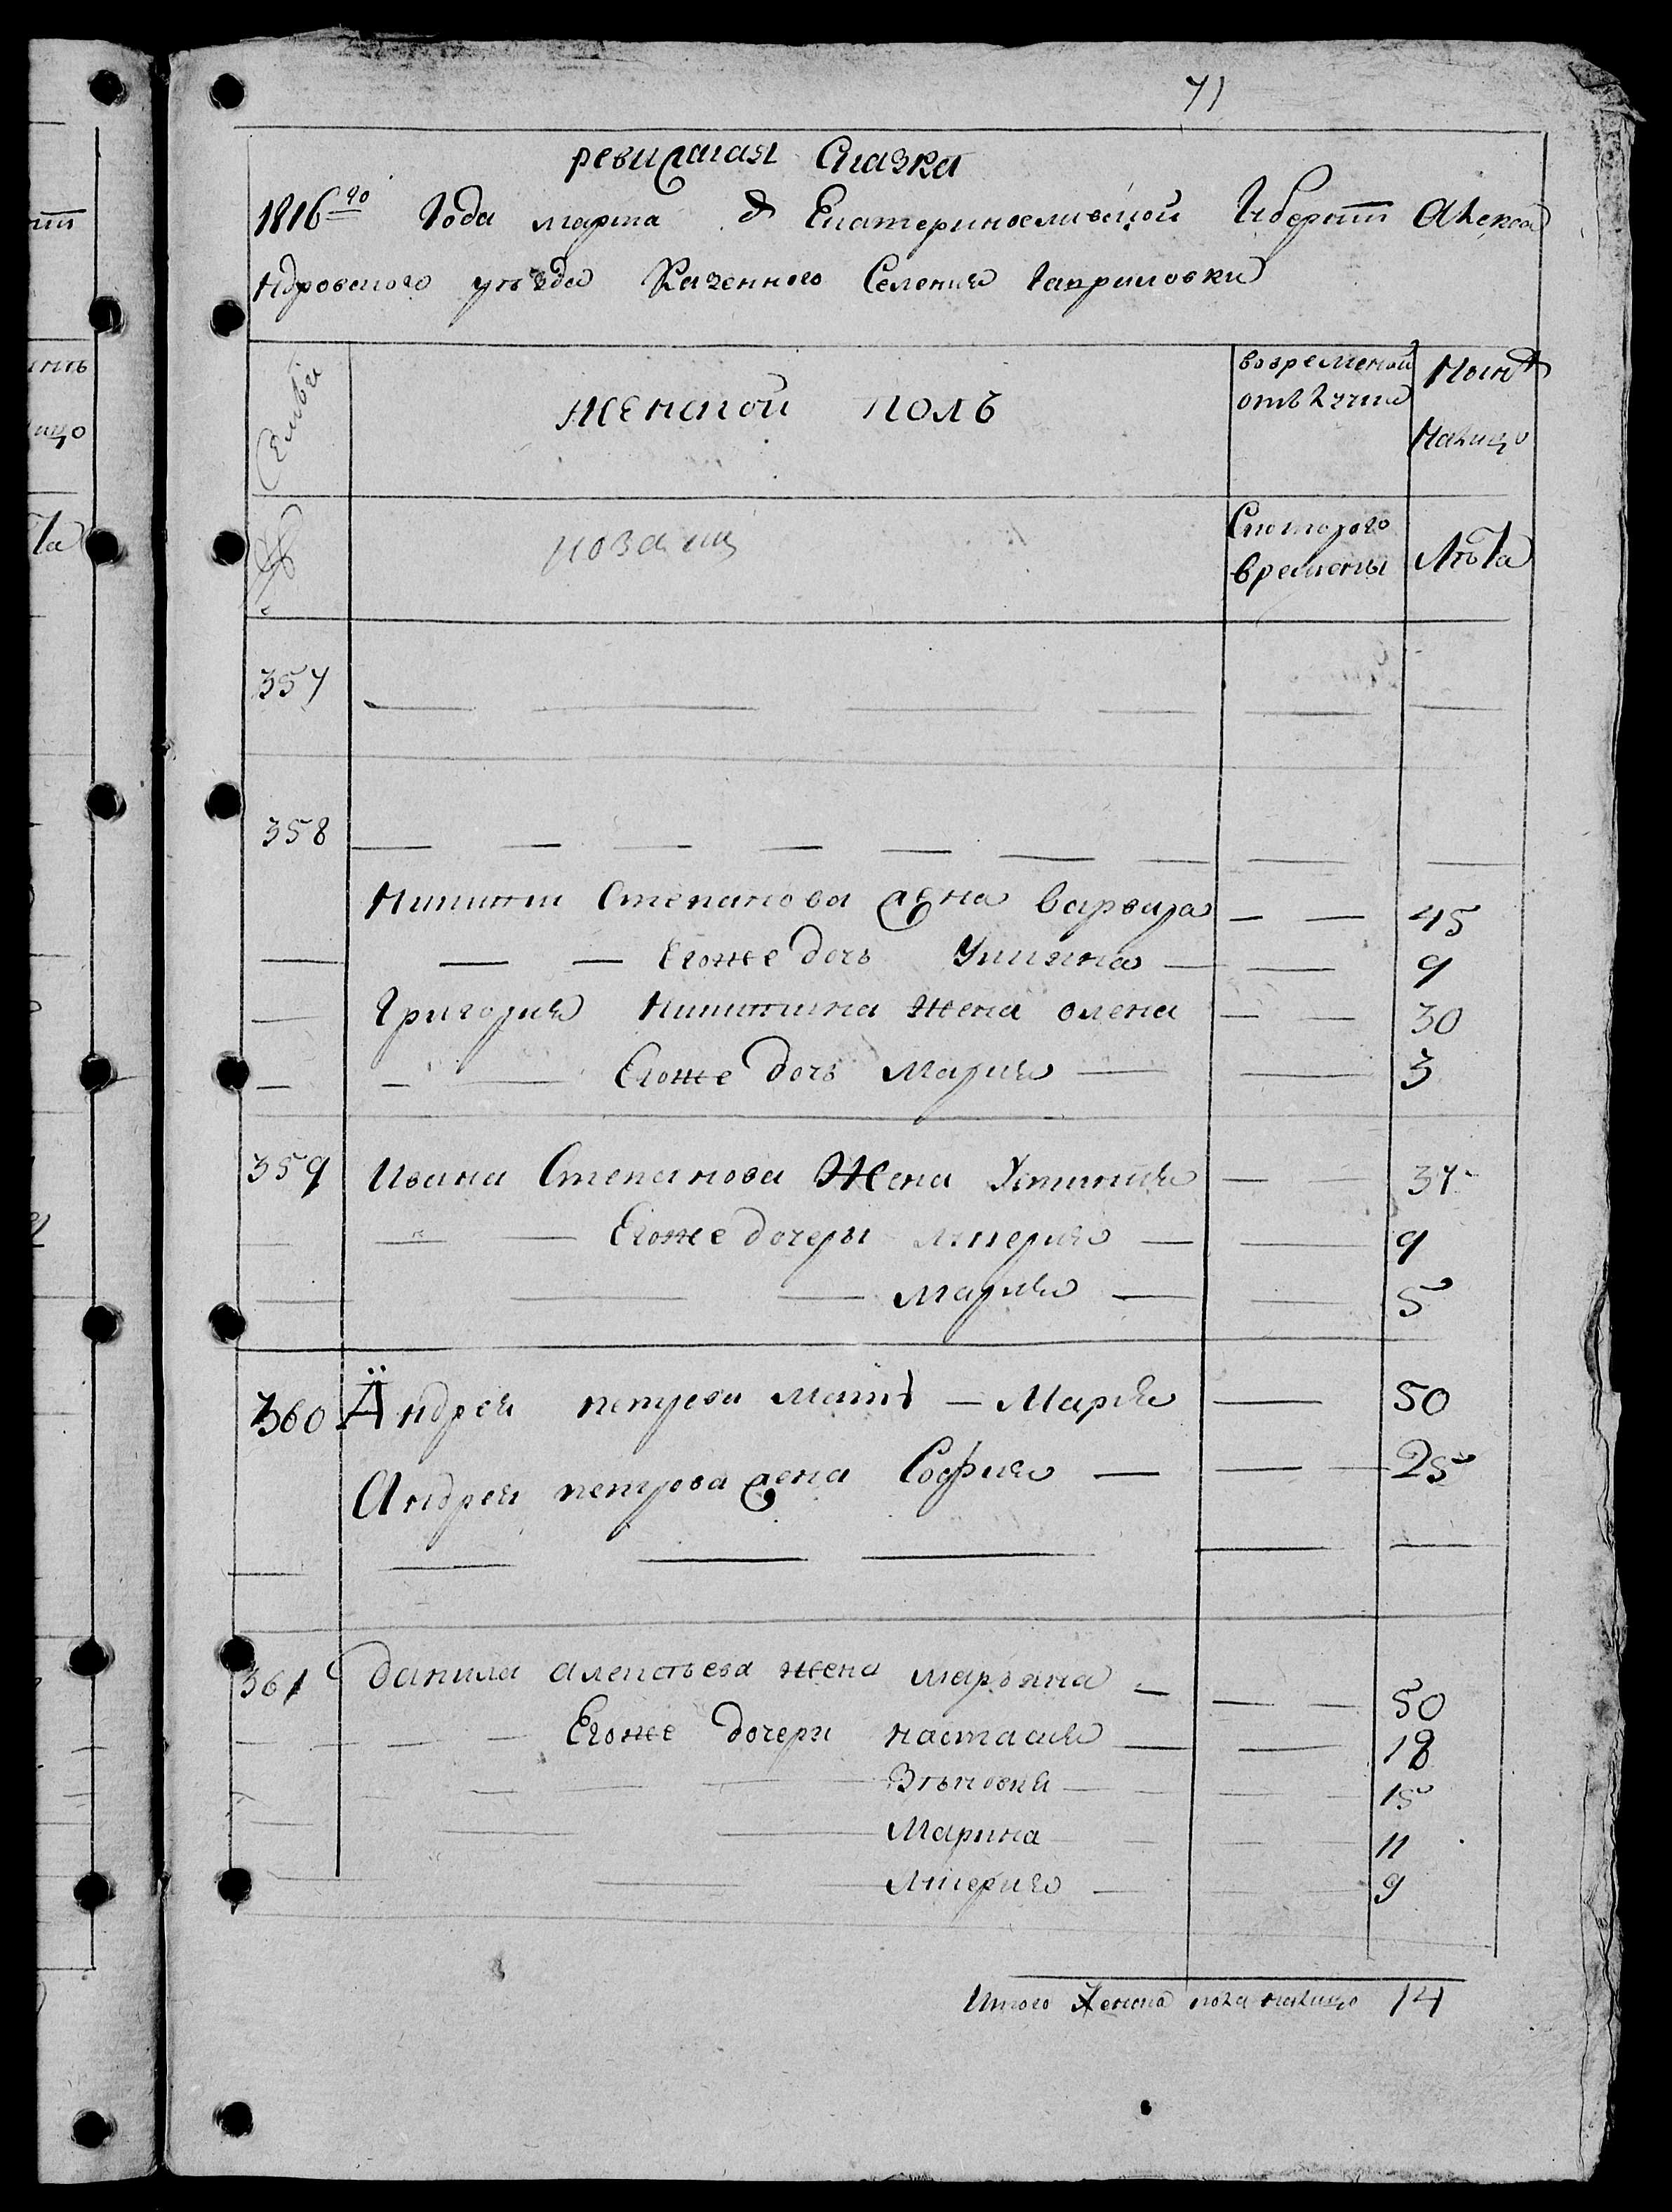 71
ревиская Сказка
1816го Года марта д Екатеринославской Губернии Алекса
ндровского уезда Казенного Селения Гавриловки
Семьи
женской полъ
вовременой
отлучки
Ныне
Налицо
№
Скоторого
времены
Лѣта
357
358
Никиты Степанова жена варвара 45
Егоже дочь Улияна 9
Григория Никитина жена олена 30
Егоже дочь Мария 3
359 Ивана Степанова Жена Устиния 37
Егоже дочеры лукерия 9
Мария 5
360 Андрея петрова мать Мария 50
Андрея петрова жена София 25
361 Данила алексеева жена марьяна 50
Егоже дочери настасия 18
Зѣновия 15
Марина 11
Лукерия 9
Итого Женска пола налицо 14